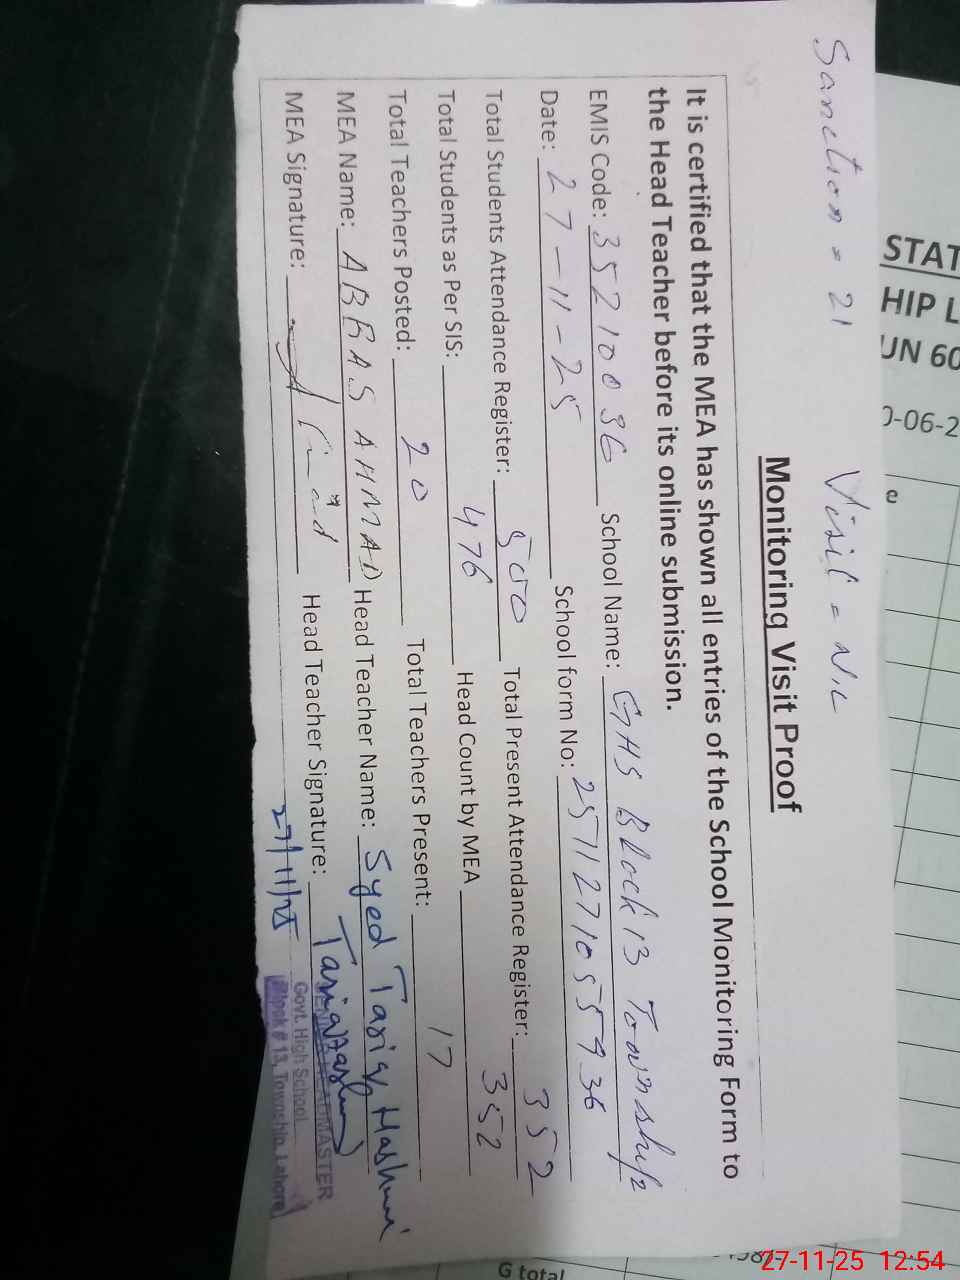 Sanction = 21 Visit = NIL
Monitoring Visit Proof
It is certified that the MEA has shown all entries of the School Monitoring Form to
the Head Teacher before its online submission.
EMIS Code: 35210036 School Name: GHS Block 13 Township
Date: 27-11-25 School form No: 2511271055936
Total Students Attendance Register: 500 Total Present Attendance Register: 352
Total Students as Per SIS: 476 Head Count by MEA 352
Total Teachers Posted: 20 Total Teachers Present: 17
MEA Name: ABBAS AHMAD Head Teacher Name: Syed Tariq Hashmi
MEA Signature: Head Teacher Signature: Tariq Hashmi
27/11/25
SENIOR HEADMASTER
Govt. High School
Block # 13, Township, Lahore
STAT
HIP L
UN 60
0-06-2
e
G total
27-11-25 12:54